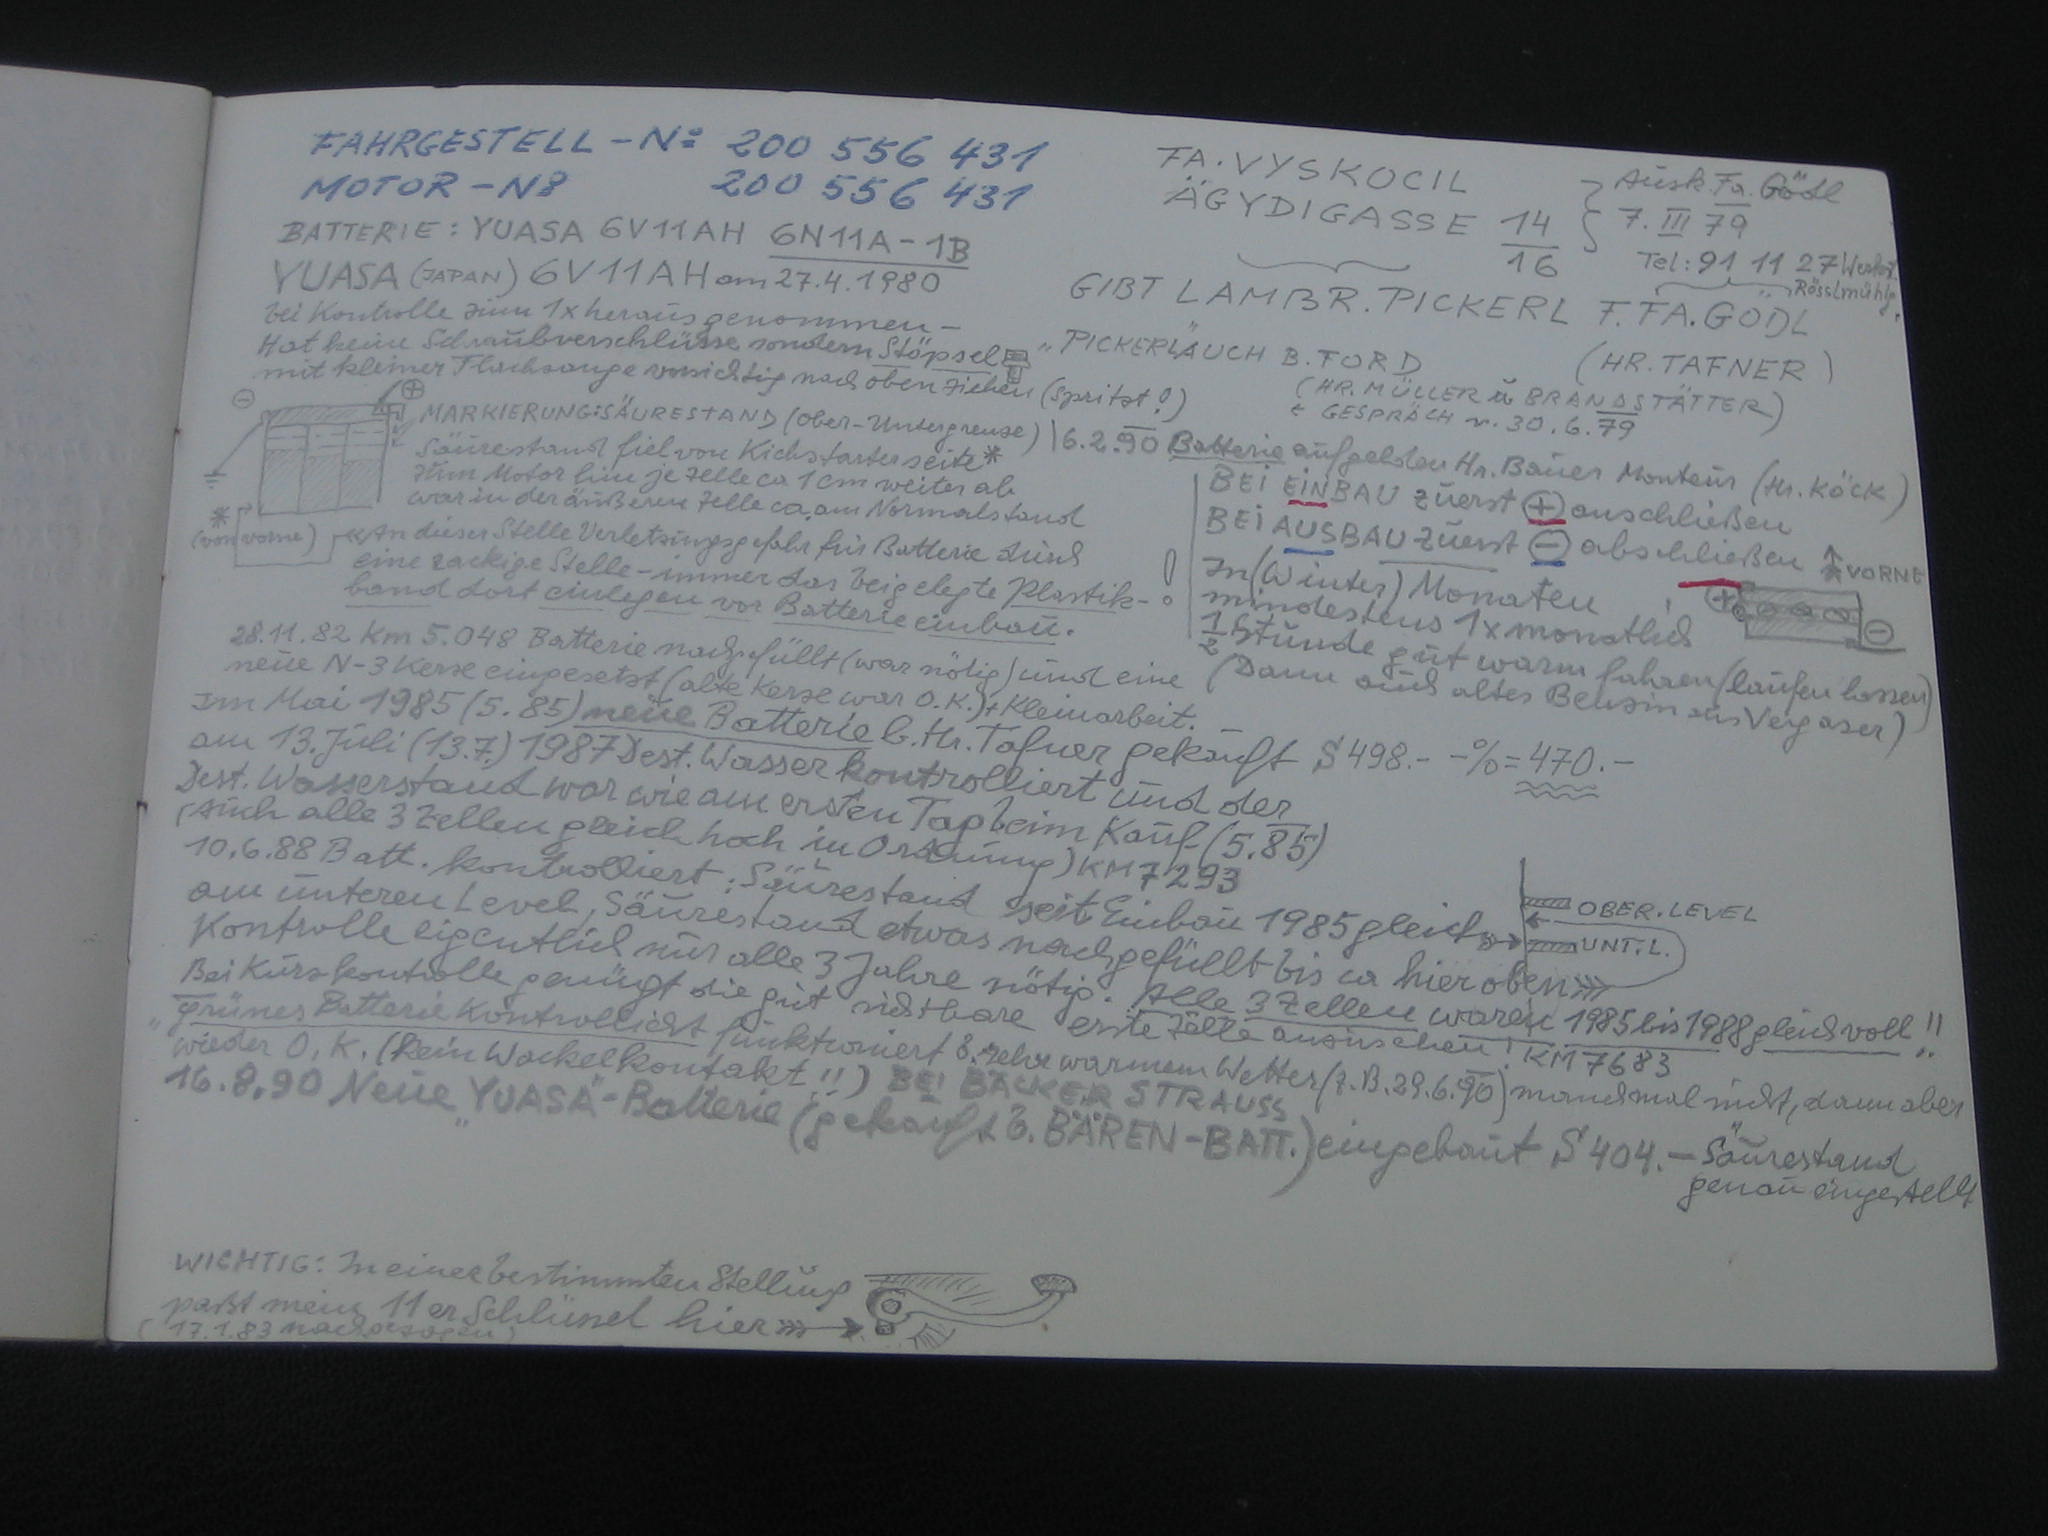 FAHRGESTELL-No 200 556 431
MOTOR-No 200 556 431
BATTERIE: YUASA 6V11AH 6N11A-1B
YUASA (JAPAN) 6V11AH am 27.4.1980
bei Kontrolle zum 1x herausgenommen-
Hat keine Schraubverschlüsse sondern Stöpsel
mit kleiner Flachzange vorsichtig nach oben ziehen (spritzt!)
- +
MARKIERUNG:SÄURESTAND (Ober-Untergrenze)
Säurestand fiel von Kickstarterseite*
zum Motor hin je Zelle ca 1cm weiter ab
war in der äußeren Zelle ca. am Normalstand
* (von vorne)
An dieser Stelle Verletzungsgefahr für Batterie durch
eine zackige Stelle-immer das beigelegte Plastik-
band dort einlegen vor Batterieeinbau. !
28.11.82 Km 5.048 Batterie nachgefüllt (war nötig) und eine
neue N-3 Kerze eingesetzt (alte Kerze war O.K.)+Kleinarbeit.
FA. VYSKOCIL
ÄGYDIGASSE 14/16
Ausk. Fa. Gödl
7. III 79
Tel: 91 11 27 Werkst.
Rösslmühlg.
GIBT LAMBR. PICKERL F. FA. GÖDL
(HR. TAFNER)
"PICKERL" AUCH B. FORD
(HR. MÜLLER u BRANDSTÄTTER)
GESPRÄCH v. 30.6.79
16.2.90 Batterie aufgeladen Hr. Bauer Monteur (Hr. Köck)
BEI EINBAU zuerst + anschließen
BEI AUSBAU zuerst - abschließen
VORNE
In (Winter) Monaten
mindestens 1x monatlich
1/2 Stunde gut warm fahren (laufen lassen)
(Dann auch altes Benzin aus Vergaser)
+ -
Im Mai 1985 (5.85) neue Batterie b. Hr. Tafner gekauft S 498.- -%= 470.-
am 13. Juli (13.7.) 1987 Dest. Wasser kontrolliert und der
Dest. Wasserstand war wie am ersten Tag beim Kauf (5.85)
(Auch alle 3 Zellen gleich hoch in Ordnung) KM 7293
10.6.88 Batt. kontrolliert: Säurestand seit Einbau 1985 gleich
am unteren Level, Säurestand etwas nachgefüllt bis ca hier oben
OBER. LEVEL
UNT. L.
Kontrolle eigentlich nur alle 3 Jahre nötig. Alle 3 Zellen waren 1985 bis 1988 gleich voll!!
Bei Kurzkontrolle genügt die gut sichtbare erste Zelle anzusehen! KM 7683
"Grünes Batterie Kontrollicht funktioniert b. sehr warmem Wetter (z.B. 29.6.90) manchmal nicht, dann aber
wieder O.K. (kein Wackelkontakt!!) BEI BÄCKER STRAUSS
16.8.90 Neue "YUASA"-Batterie (gekauft b. BÄREN-BATT.) eingebaut S 404.- Säurestand
genau eingestellt
WICHTIG: In einer bestimmten Stellung
paßt mein 11er Schlüssel hier
(17.1.83 nachgezogen)